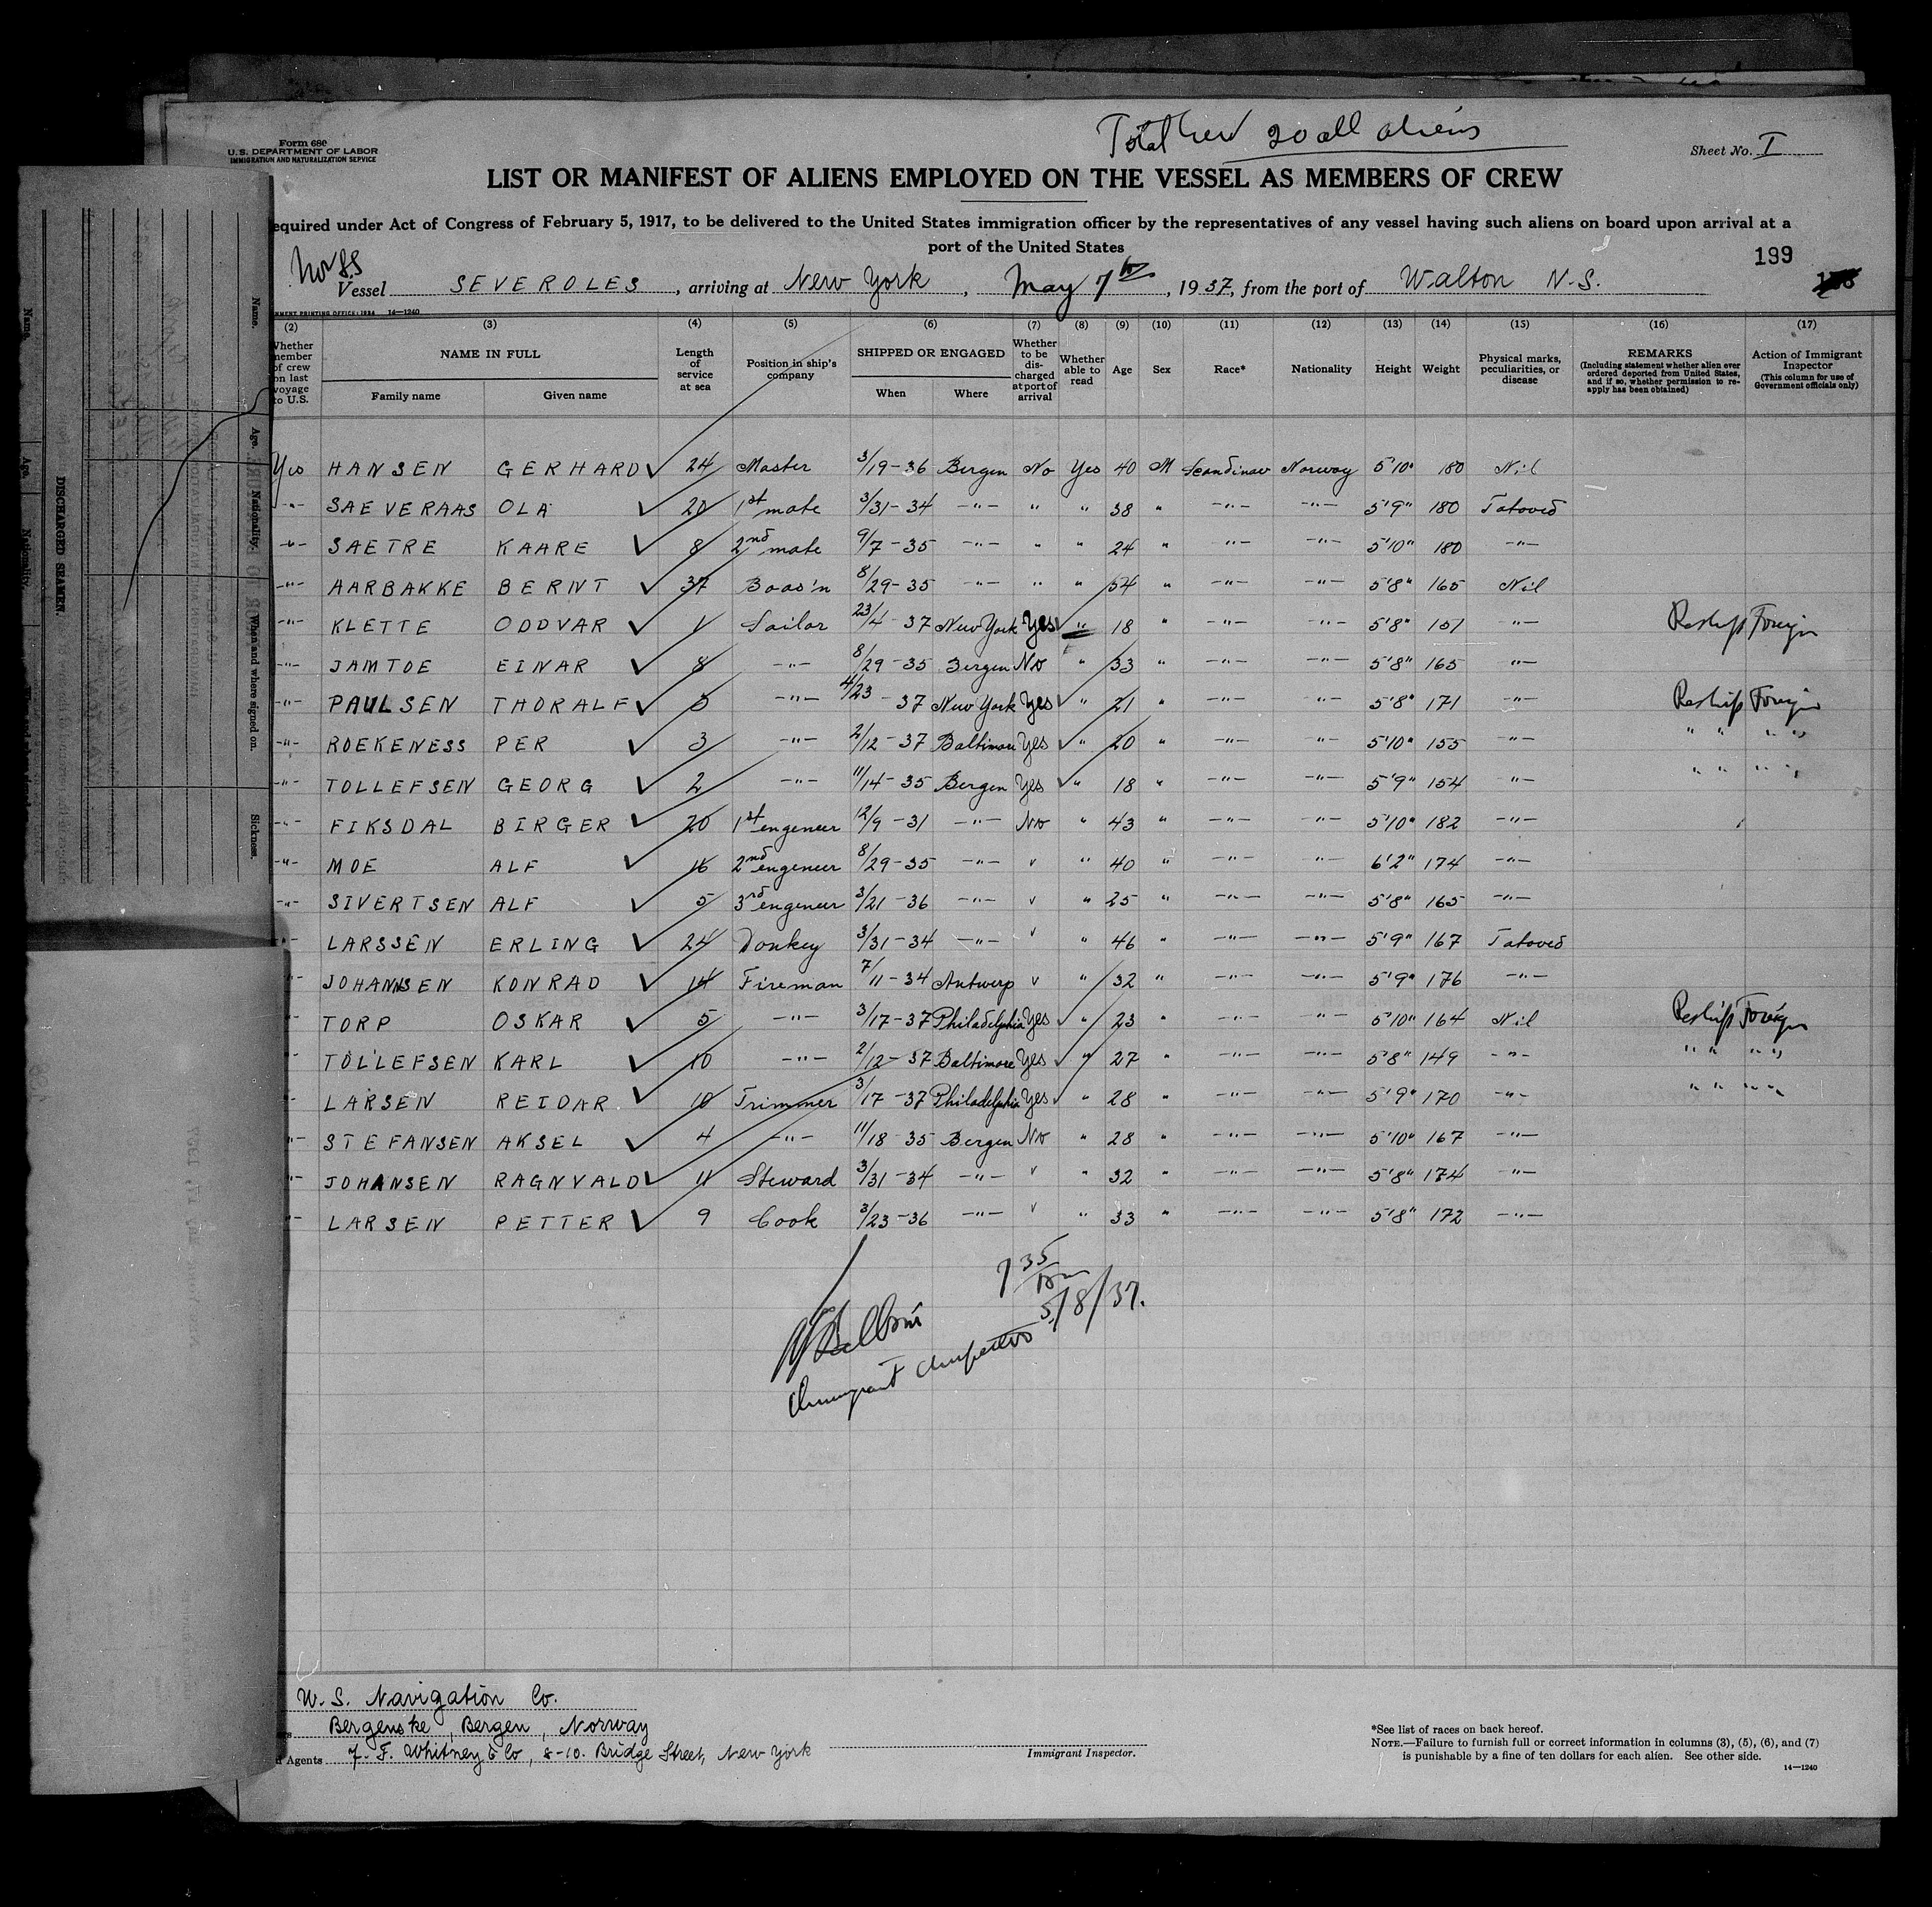 Total crew 20 all aliens
Form 680
U.S. DEPARTMENT OF LABOR
IMMIGRATION AND NATURALIZATION SERVICE
Sheet No. I
LIST OR MANIFEST OF ALIENS EMPLOYED ON THE VESSEL AS MEMBERS OF CREW
equired under Act of Congress of February 5, 1917, to be delivered to the United States immigration officer by the representatives of any vessel having such aliens on board upon arrival at a
port of the United States
199
Nor SS
Vessel SEVEROLES, arriving at New York, May 7th, 1937, from the port of Walton N.S.
NMENT PRINTING OFFICE: 1934 14—1240
(2) (3) (4) (5) (6) (7) (8) (9) (10) (11) (12) (13) (14) (15) (16) (17)
Whether member of crew on last voyage to U.S. NAME IN FULL Family name Given name Length of service at sea Position in ship's company SHIPPED OR ENGAGED When Where Whether to be discharged at port of arrival Whether able to read Age Sex Race* Nationality Height Weight Physical marks, peculiarities, or disease REMARKS (Including statement whether alien ever ordered deported from United States, and if so, whether permission to reapply has been obtained) Action of Immigrant Inspector (This column for use of Government officials only)
Yes HANSEN GERHARD ✓ 24 Master 3/19-36 Bergen No Yes 40 M Scandinav Norway 5'10" 180 Nil
-"- SAEVERAAS OLA ✓ 20 1st mate 3/31-34 -"- " " 38 " -"- -"- 5'9" 180 Tatoved
-"- SAETRE KAARE ✓ 8 2nd mate 9/7-35 -"- " " 24 " -"- -"- 5'10" 180 -"-
-"- AARBAKKE BERNT ✓ 37 Boas'n 8/29-35 -"- " " 54 " -"- -"- 5'8" 165 Nil
-"- KLETTE ODDVAR ✓ 1 Sailor 23/4-37 New York Yes ✓ " 18 " -"- -"- 5'8" 151 -"- Reship Foreign
-"- JAMTOE EINAR ✓ 8 -"- 8/29-35 Bergen No " 33 " -"- -"- 5'8" 165 -"-
-"- PAULSEN THORALF ✓ 5 -"- 4/23-37 New York Yes ✓ " 21 " -"- -"- 5'8" 171 -"- Reship Foreign
-"- ROEKENESS PER ✓ 3 -"- 2/12-37 Baltimore Yes ✓ " 20 " -"- -"- 5'10" 155 -"- " " " "
-"- TOLLEFSEN GEORG ✓ 2 -"- 11/14-35 Bergen Yes ✓ " 18 " -"- -"- 5'9" 154 -"- " " " "
-"- FIKSDAL BIRGER ✓ 20 1st engeneer 12/9-31 -"- No " 43 " -"- -"- 5'10" 182 -"-
-"- MOE ALF ✓ 16 2nd engeneer 8/29-35 -"- v " 40 " -"- -"- 6'2" 174 -"-
-"- SIVERTSEN ALF ✓ 5 3rd engeneer 3/21-36 -"- v " 25 " -"- -"- 5'8" 165 -"-
" LARSSEN ERLING ✓ 24 Donkey 3/31-34 -"- v " 46 " -"- -"- 5'9" 167 Tatoved
" JOHANNSEN KONRAD ✓ 14 Fireman 7/11-34 Antwerp v " 32 " -"- -"- 5'9" 176 -"-
" TORP OSKAR ✓ 5 -"- 3/17-37 Philadelphia Yes ✓ " 23 " -"- -"- 5'10" 164 Nil Reship Foreign
" TOLLEFSEN KARL ✓ 10 -"- 2/12-37 Baltimore Yes ✓ " 27 " -"- -"- 5'8" 149 -"- " " " "
" LARSEN REIDAR ✓ 10 Trimmer 3/17-37 Philadelphia Yes ✓ " 28 " -"- -"- 5'9" 170 -"- " " " "
"- STEFANSEN AKSEL ✓ 4 -"- 11/18-35 Bergen No " 28 " -"- -"- 5'10" 167 -"-
"- JOHANSEN RAGNVALD ✓ 11 Steward 3/31-34 -"- v " 32 " -"- -"- 5'8" 174 -"-
"- LARSEN PETTER ✓ 9 Cook 3/23-36 -"- v " 33 " -"- -"- 5'8" 172 -"-
7 35
5/8/37.
Immigrant Inspector
W. S. Navigation Co.
Bergenske, Bergen, Norway
Agents F. Whitney & Co, 8-10. Bridge Street, New York
Immigrant Inspector.
*See list of races on back hereof.
NOTE.—Failure to furnish full or correct information in columns (3), (5), (6), and (7)
is punishable by a fine of ten dollars for each alien. See other side.
14—1240
DISCHARGED SEAMEN.
Name.
Age.
Nationality.
When and where signed on.
Sickness.
Name.
Age.
Nationality.